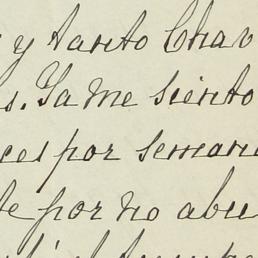 y tanto Chav
s. Ya me siento
ces por seman
te por no abu